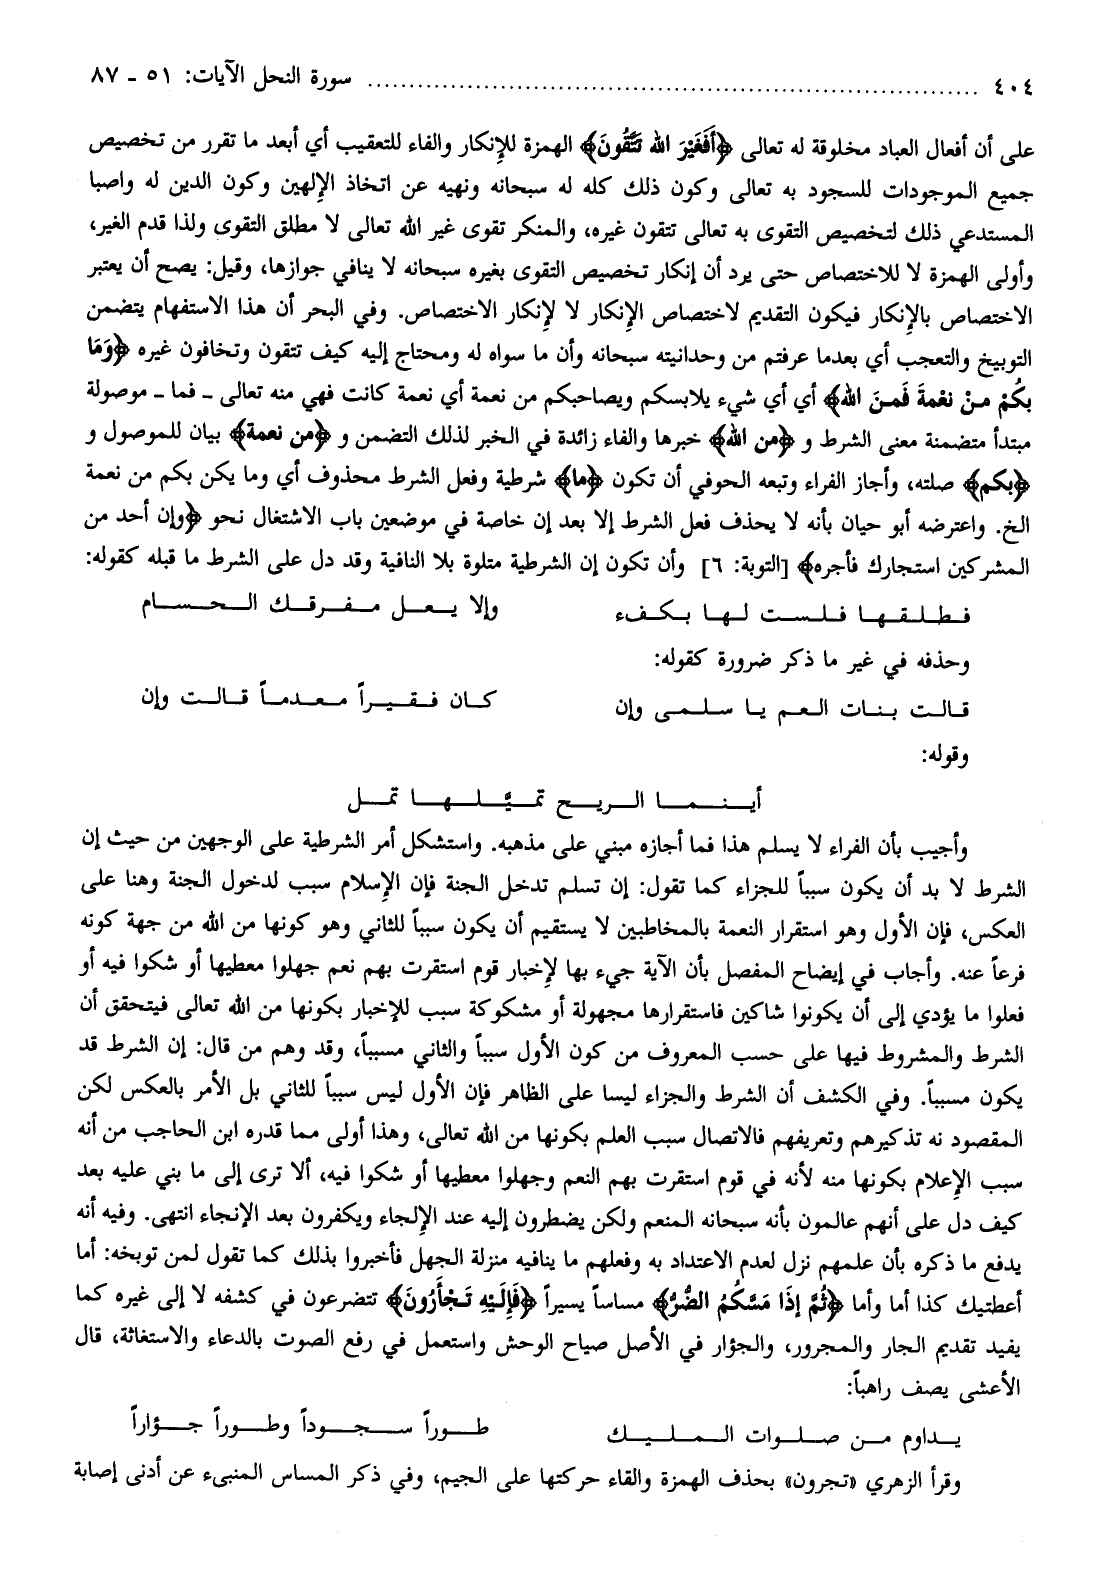 ٤٠٤ .......... سورة النحل الآيات: ٥١ ـ ٨٧
على أن أفعال العباد مخلوقة له تعالى ﴿أَفَغَيْرَ الله تَتَّقُونَ﴾ الهمزة للإنكار والفاء للتعقيب أي أبعد ما تقرر من تخصيص
جميع الموجودات للسجود به تعالى وكون ذلك كله له سبحانه ونهيه عن اتخاذ الإلهين وكون الدين له واصبا
المستدعي ذلك لتخصيص التقوى به تعالى تتقون غيره، والمنكر تقوى غير الله تعالى لا مطلق التقوى ولذا قدم الغير،
وأولى الهمزة لا للاختصاص حتى يرد أن إنكار تخصيص التقوى بغيره سبحانه لا ينافي جوازها، وقيل: يصح أن يعتبر
الاختصاص بالإنكار فيكون التقديم لاختصاص الإنكار لا لإنكار الاختصاص. وفي البحر أن هذا الاستفهام يتضمن
التوبيخ والتعجب أي بعدما عرفتم من وحدانيته سبحانه وأن ما سواه له ومحتاج إليه كيف تتقون وتخافون غيره ﴿وَمَا
بِكُمْ منْ نعْمةَ فَمنَ الله﴾ أي أي شيء يلابسكم ويصاحبكم من نعمة أي نعمة كانت فهي منه تعالى ـ فما ـ موصولة
مبتدأ متضمنة معنى الشرط و ﴿من الله﴾ خبرها والفاء زائدة في الخبر لذلك التضمن و ﴿من نعمة﴾ بيان للموصول و
﴿بكم﴾ صلته، وأجاز الفراء وتبعه الحوفي أن تكون ﴿ما﴾ شرطية وفعل الشرط محذوف أي وما يكن بكم من نعمة
الخ. واعترضه أبو حيان بأنه لا يحذف فعل الشرط إلا بعد إن خاصة في موضعين باب الاشتغال نحو ﴿وإن أحد من
المشركين استجارك فأجره﴾ [التوبة: ٦] وأن تكون إن الشرطية متلوة بلا النافية وقد دل على الشرط ما قبله كقوله:
فطلقها فلست لها بكفء وإلا يعل مفرقك الحسام
وحذفه في غير ما ذكر ضرورة كقوله:
قالت بنات العم يا سلمى وإن كان فقيراً معدماً قالت وإن
وقوله:
أينما الريح تميَّلها تمل
وأجيب بأن الفراء لا يسلم هذا فما أجازه مبني على مذهبه. واستشكل أمر الشرطية على الوجهين من حيث إن
الشرط لا بد أن يكون سبباً للجزاء كما تقول: إن تسلم تدخل الجنة فإن الإسلام سبب لدخول الجنة وهنا على
العكس، فإن الأول وهو استقرار النعمة بالمخاطبين لا يستقيم أن يكون سبباً للثاني وهو كونها من الله من جهة كونه
فرعاً عنه. وأجاب في إيضاح المفصل بأن الآية جيء بها لإخبار قوم استقرت بهم نعم جهلوا معطيها أو شكوا فيه أو
فعلوا ما يؤدي إلى أن يكونوا شاكين فاستقرارها مجهولة أو مشكوكة سبب للإخبار بكونها من الله تعالى فيتحقق أن
الشرط والمشروط فيها على حسب المعروف من كون الأول سبباً والثاني مسبباً، وقد وهم من قال: إن الشرط قد
يكون مسبباً. وفي الكشف أن الشرط والجزاء ليسا على الظاهر فإن الأول ليس سبباً للثاني بل الأمر بالعكس لكن
المقصود نه تذكيرهم وتعريفهم فالاتصال سبب العلم بكونها من الله تعالى، وهذا أولى مما قدره ابن الحاجب من أنه
سبب الإعلام بكونها منه لأنه في قوم استقرت بهم النعم وجهلوا معطيها أو شكوا فيه، ألا ترى إلى ما بني عليه بعد
كيف دل على أنهم عالمون بأنه سبحانه المنعم ولكن يضطرون إليه عند الإلجاء ويكفرون بعد الإنجاء انتهى. وفيه أنه
يدفع ما ذكره بأن علمهم نزل لعدم الاعتداد به وفعلهم ما ينافيه منزلة الجهل فأخبروا بذلك كما تقول لمن توبخه: أما
أعطتيك كذا أما وأما ﴿ثُمَّ إذَا مَسَّكُمُ الضُّرُّ﴾ مساساً يسيراً ﴿فَإلَيْهِ تَجْأَرُونَ﴾ تتضرعون في كشفه لا إلى غيره كما
يفيد تقديم الجار والمجرور، والجؤار في الأصل صياح الوحش واستعمل في رفع الصوت بالدعاء والاستغاثة، قال
الأعشى يصف راهباً:
يداوم من صلوات المليك طوراً سجوداً وطوراً جؤاراً
وقرأ الزهري «تجرون» بحذف الهمزة والقاء حركتها على الجيم، وفي ذكر المساس المنبىء عن أدنى إصابة